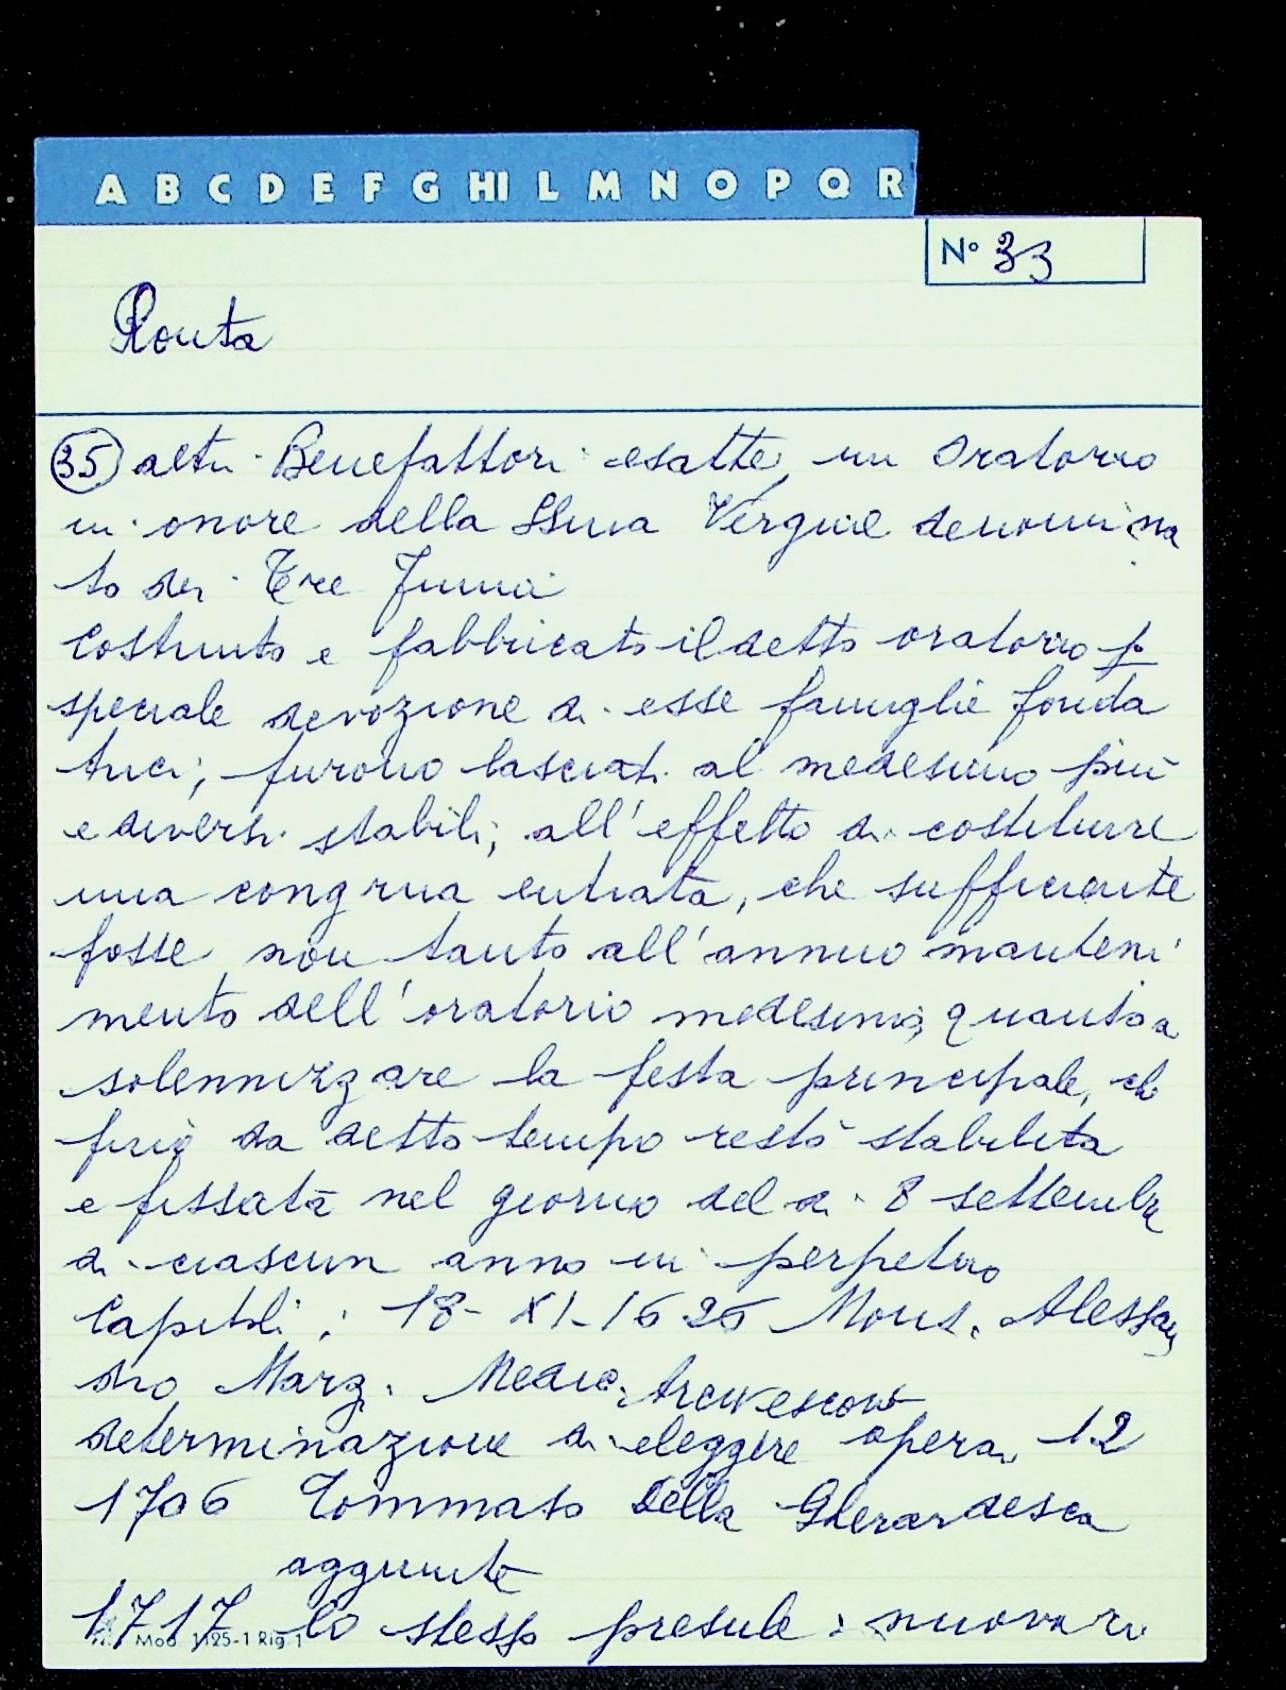 A B C D E F G HI L M N O P Q R
N° 33
Ronta
35 altri Benefattori esatte, un Oratorio
in onore della SSma Vergine denomina
to dei Tre Fiumi
Costruito e fabbricato il detto oratorio p
speciale devozione di esse famiglie fonda
trici, furono lasciati al medesimo più
e diversi stabili, all'effetto di costituire
una congrua entrata, che sufficiente
fosse non tanto all'annuo manteni
mento dell'oratorio medesimo, quanto a
solennizzare la festa principale, che
fino da detto tempo restò stabilita
e fissata nel giorno del dì 8 settembre
di ciascun anno in perpetuo
Capitoli: 18-XI-1626 Mons. Alessan
dro Marz. Medic. Arcivescovo
determinazione di eleggere operai 12
1706 Tommaso Della Gherardesca
aggiunte
1717 lo stesso presule: nuova ri
Mod. 1125-1 Rig. 1